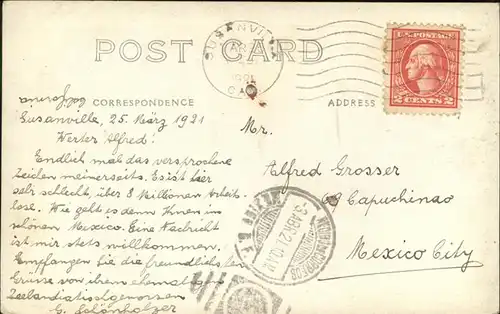 POST CARD
SUSANVILLE
CAL
U.S. POSTAGE
2 CENTS 2
CORRESPONDENCE
ADDRESS
California
Susanville, 25. März 1921
Werter Alfred!
Endlich mal das versprochene
Zeilen meinerseits. Es ist hier
sehr schlecht, über 3 Millionen Arbeits-
lose. Wie geht es denn Ihnen im
schönen Mexico. Eine Nachricht
ist mir stets willkommen.
Empfangen Sie die freundlichsten
Grüsse von ihrem ehemaligen
Zeelandiatischgenossen
G. Schönholzer
Mr.
Alfred Grosser
Capuchinao
Mexico City